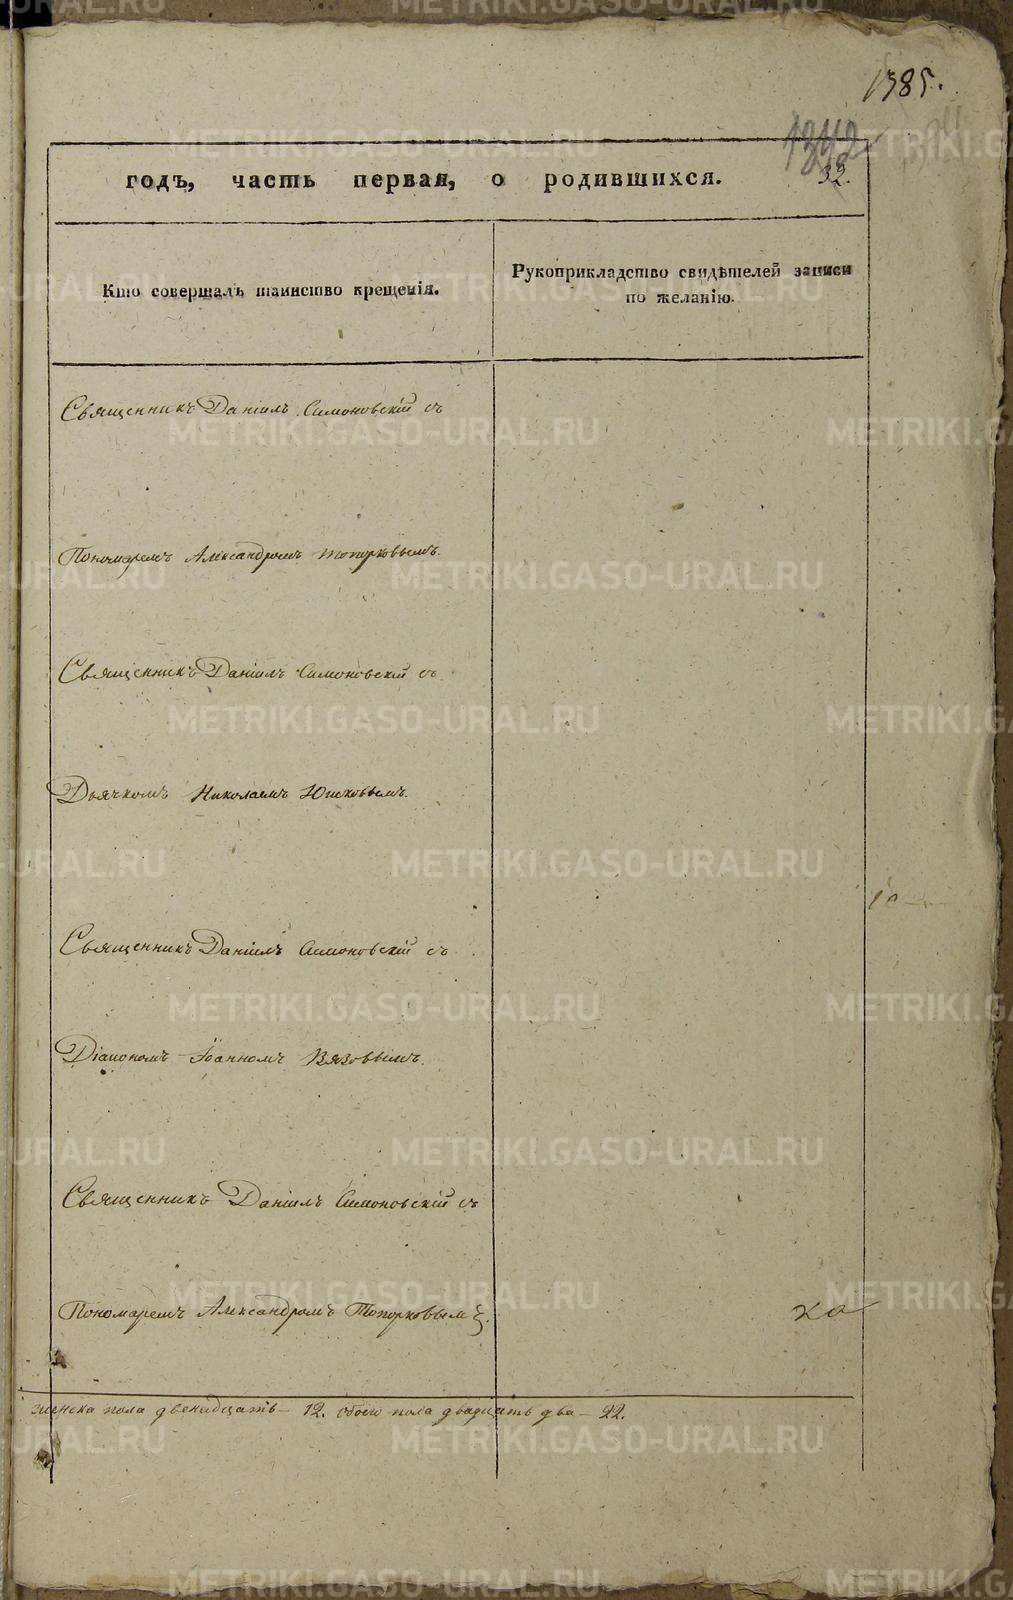 1385.
1342
32.
годъ, часть первая, о родившихся.
Кто совершалъ таинство крещенія.
Рукоприкладство свидѣтелей записи
по желанію.
Священникъ Даніилъ Симоновскій съ
Пономаремъ Александромъ Топорковымъ.
Священникъ Даніилъ Симоновскій съ
Дьячкомъ Николаемъ Юшковымъ.
Священникъ Даніилъ Симоновскій съ
Діакономъ Іоанномъ Вязовымъ.
Священникъ Даніилъ Симоновскій съ
Пономаремъ Александромъ Топорковымъ.
ка
женска пола двенадцать – 12. обоего пола двадцать два – 22.
METRIKI.GASO-URAL.RU